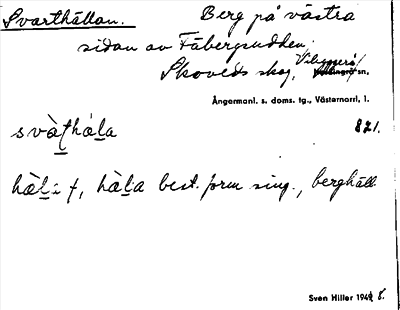 Svarthällan. Berg på västra
sidan av Fäbergsudden.
Skoveds skog, Vibyggerå sn,
Ångermanl. s. doms. tg., Västernorrl. l.
svàṯhál̲a 821.
hàl̲i f, hàl̲a best. form sing., berghäll.
Sven Hiller 1948.